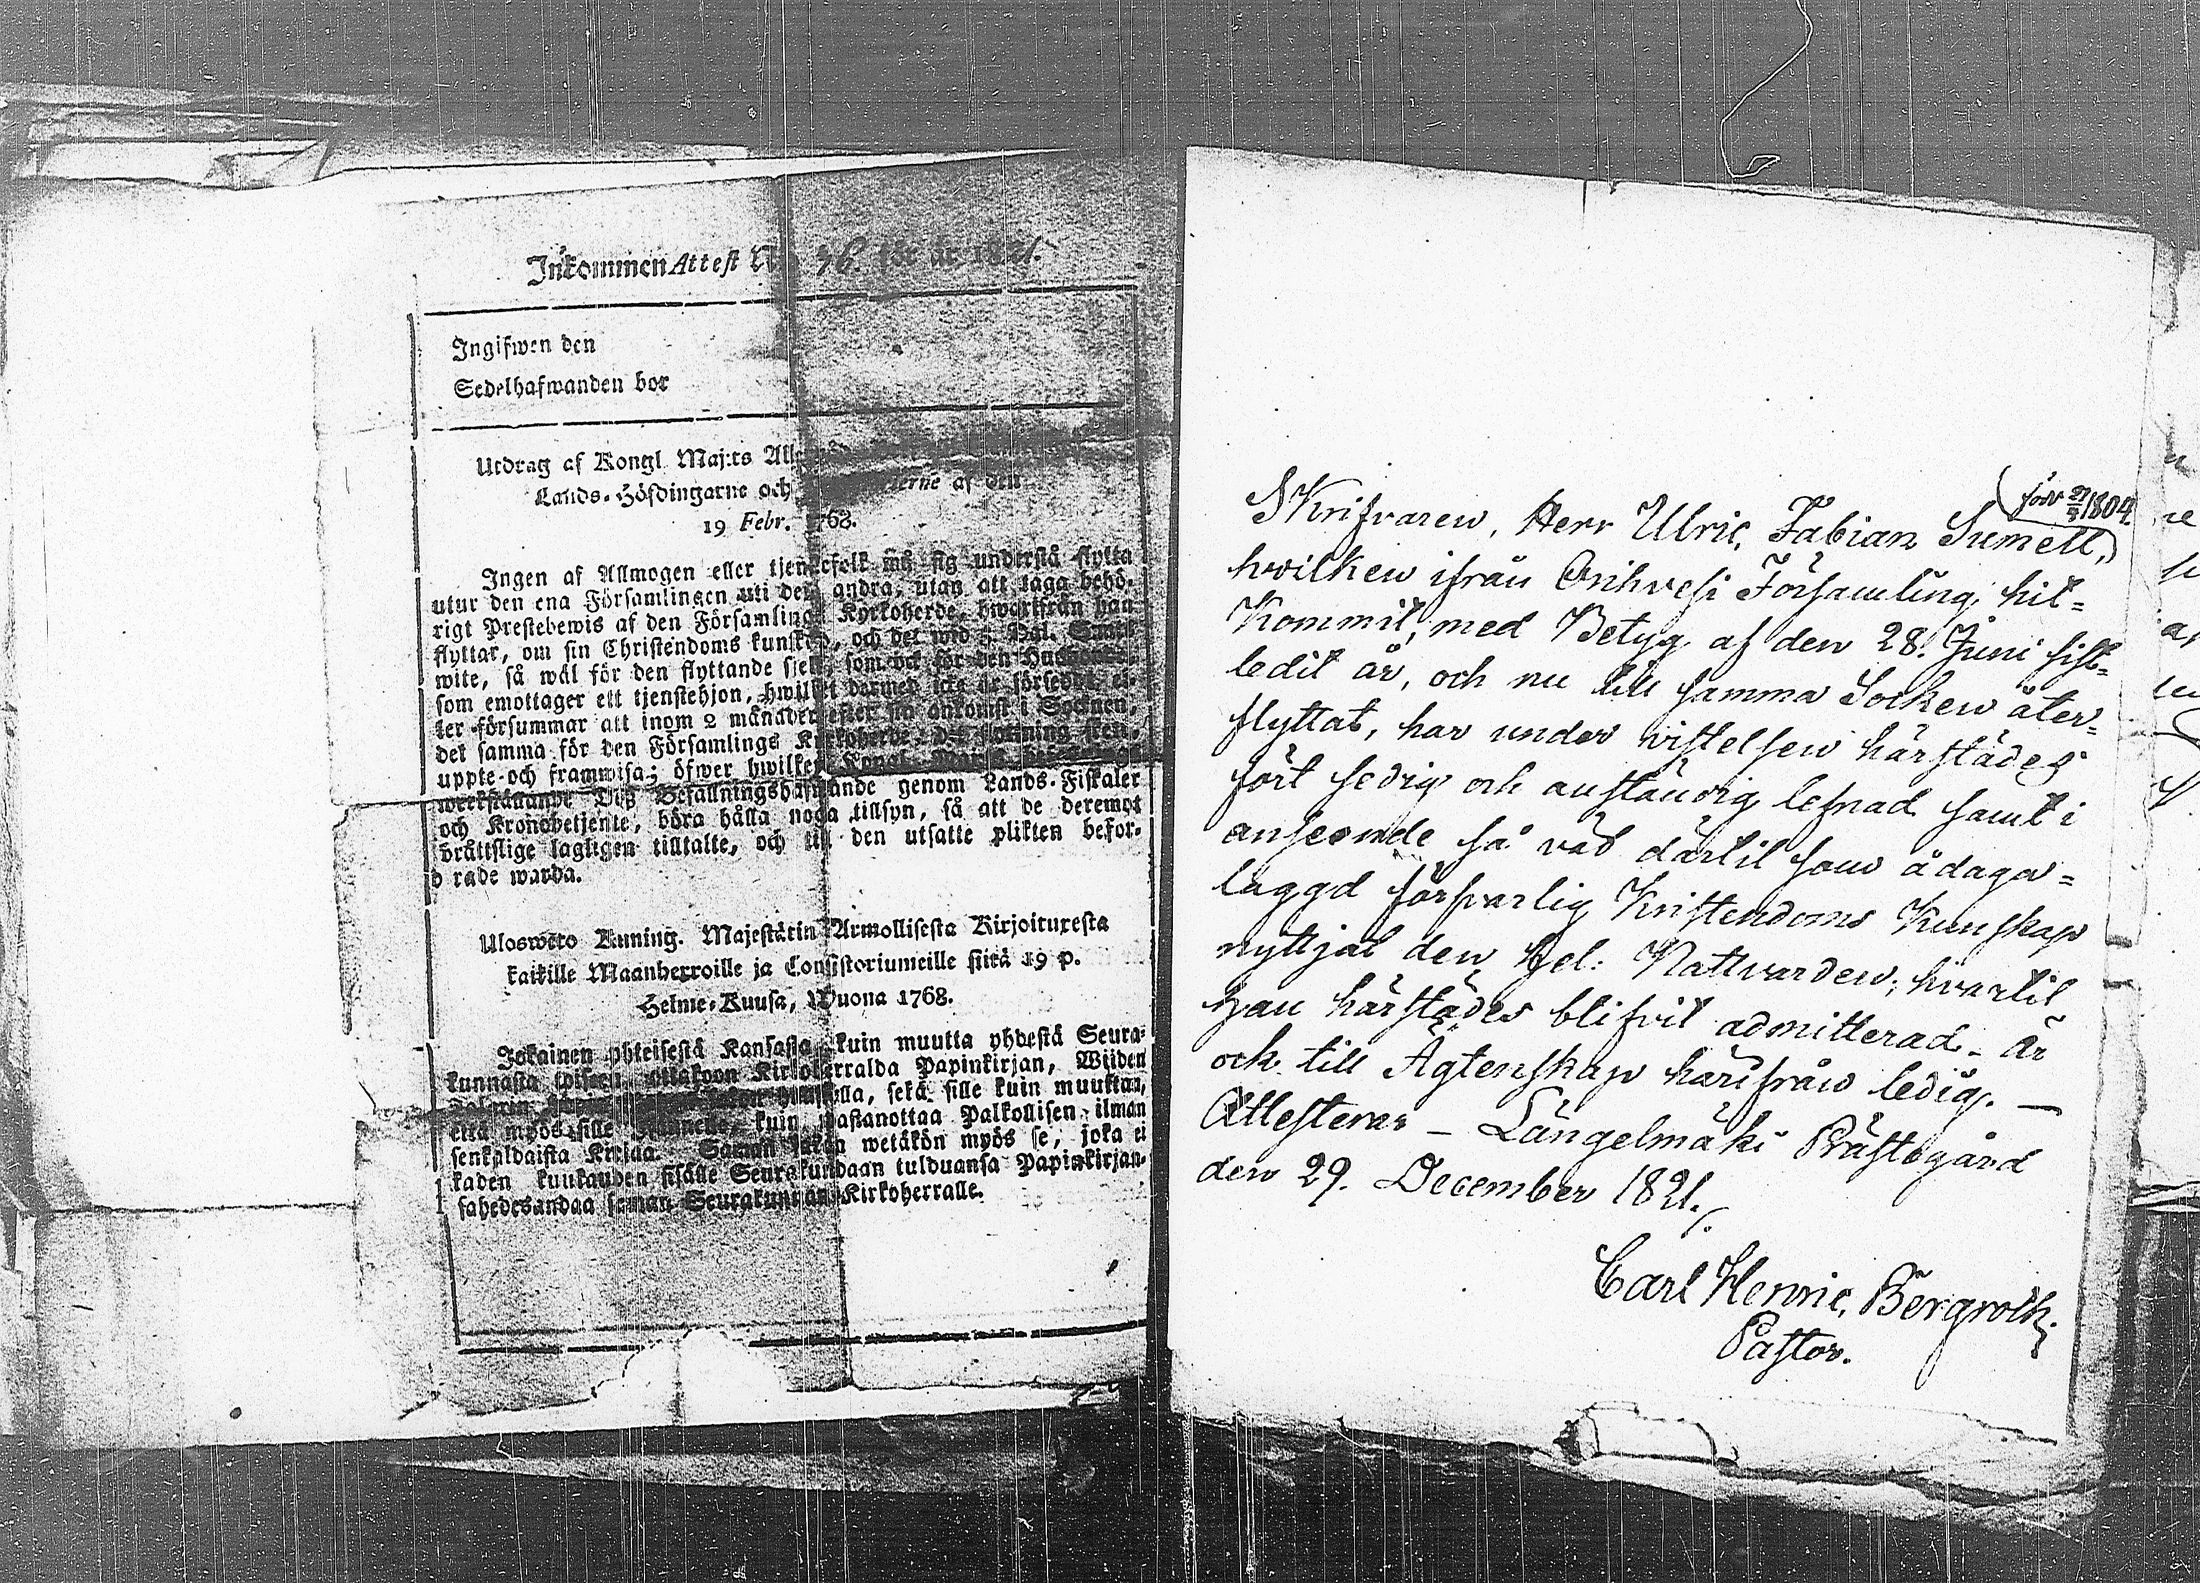 Inkommen Attest No 76. för år 1821.
Ingifwen den
Sedelhafwanden bor
Utdrag af Kongl. Maj:ts
Lands-Höfdingarne och af den
19 Febr. 1768.
Ingen af Allmogen eller tjenstefolk må sig understå flytta
utur den ena Församlingen uti den andra, utan att taga behö-
rigt Prestebewis af den Församlings Kyrkoherde, hwarifrån han
flyttar, om sin Christendoms kunskap, och det wid 5. Dal. Smts
wite, så wäl för den flyttande sjelf, som ock för den Husbonde,
som emottager ett tjenstehjon, hwilket dermed icke är försedt, el-
ler försummar att inom 2 månader efter sin ankomst i Socknen,
det samma för den Församlings Kyrkoherde,
uppte och framwisa; öfwer hwilket Kongl. Maj:ts
werkställande Dess Befallningshafwande genom Lands-Fiskaler
och Kronobetjente, böra hålla noga tillsyn, så att de deremot
bråttslige lagligen tilltalte, och till den utsatte plikten befor-
d rade warda.
Uloswéto Kuning. Majestätin Armollisesta Kirjoituxesta
kaikille Maanherroille ja Consistoriumeille siitä 19 p.
Helme-Kuusa, Wuona 1768.
Jokainen yhteisestä Kansasta, kuin muutta yhdestä Seura-
kunnasta toiseen, ottakoon Kirkoherralda Papinkirjan, Wiiden
Talarin sekä sille kuin muuttaa,
että myös sille kuin wastanottaa Palkollisen ilman
senkaldaista Kirjaa. Saman sakon wetäkön myös se, joka ei
kaden kuukauden sisälle Seurakundaan tulduansa Papinkirjan-
sa edesandaa saman Seurakunnan Kirkoherralle.
(född 27/3 1804.)
Skrifvaren, Herr Ulric Fabian Sumell,
hvilken ifrån Orihvesi Församling, hit-
kommit, med Betyg af den 28. Juni sist-
ledit år, och nu till samma Socken åter-
flyttat, har under vistelsen härstädes
fört sedig och anständig lefnad samt i
anseende så väl därtil som ådaga-
laggd försvarlig Kristendoms Kunskap
nyttjat den Hel: Nattvarden, hvartil
han härstädes blifvit admitterad. Är
och till Ägtenskap härifrån ledig. —
Attesteras — Längelmäki Prästegård
den 29. December 1821./.
Carl Henric Bergroth.
Pastor.